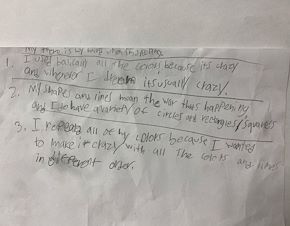 My there is by
1. I used basically all the colors because its crazy
and whenever I dream its usually crazy.
2. My shapes and lines mean the war thats happening
and I to have a variety of circles and rectangles/squares
3. I repeated all of my colors because I wanted
to make it crazy with all the colors and lines
in different order.